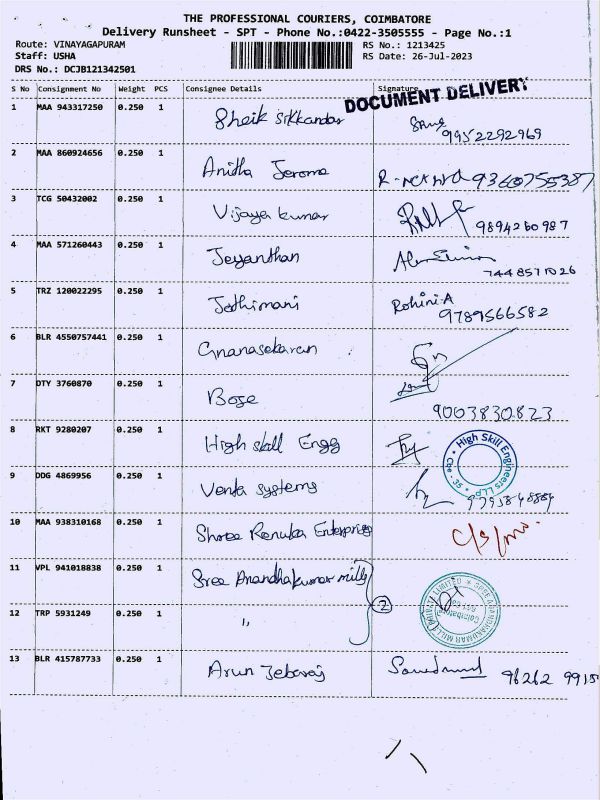 THE PROFESSIONAL COURIERS, COIMBATORE
Delivery Runsheet - SPT - Phone No.:0422-3505555 - Page No.:1
Route: VINAYAGAPURAM RS No.: 1213425
Staff: USHA RS Date: 26-Jul-2023
DRS No.: DCJB121342501
S No Consignment No Weight PCS Consignee Details Signature
DOCUMENT DELIVERY
1 MAA 943317250 0.250 1 Sheik sikkandar
9952292969
2 MAA 860924656 0.250 1 Anitha Jerome 9360755387
3 TCG 50432002 0.250 1 Vijaya kumar
9894260987
4 MAA 571260443 0.250 1 Jeyanthan
7448571026
5 TRZ 120022295 0.250 1 Jothimani Rohini.A
9789566582
6 BLR 4550757441 0.250 1 Gnanasekaran
7 DTY 3760870 0.250 1 Bose
9003830823
8 RKT 9280207 0.250 1 High skill Engg
High Skill Engineers LLP Cbe - 35
9 DDG 4869956 0.250 1 Venta systems
10 MAA 938310168 0.250 1 Shree Renuka Enterprises
11 VPL 941018838 0.250 1 Sree Anandhakumar mills
2
12 TRP 5931249 0.250 1 "
13 BLR 415787733 0.250 1 Arun Jebaraj
96262 9915